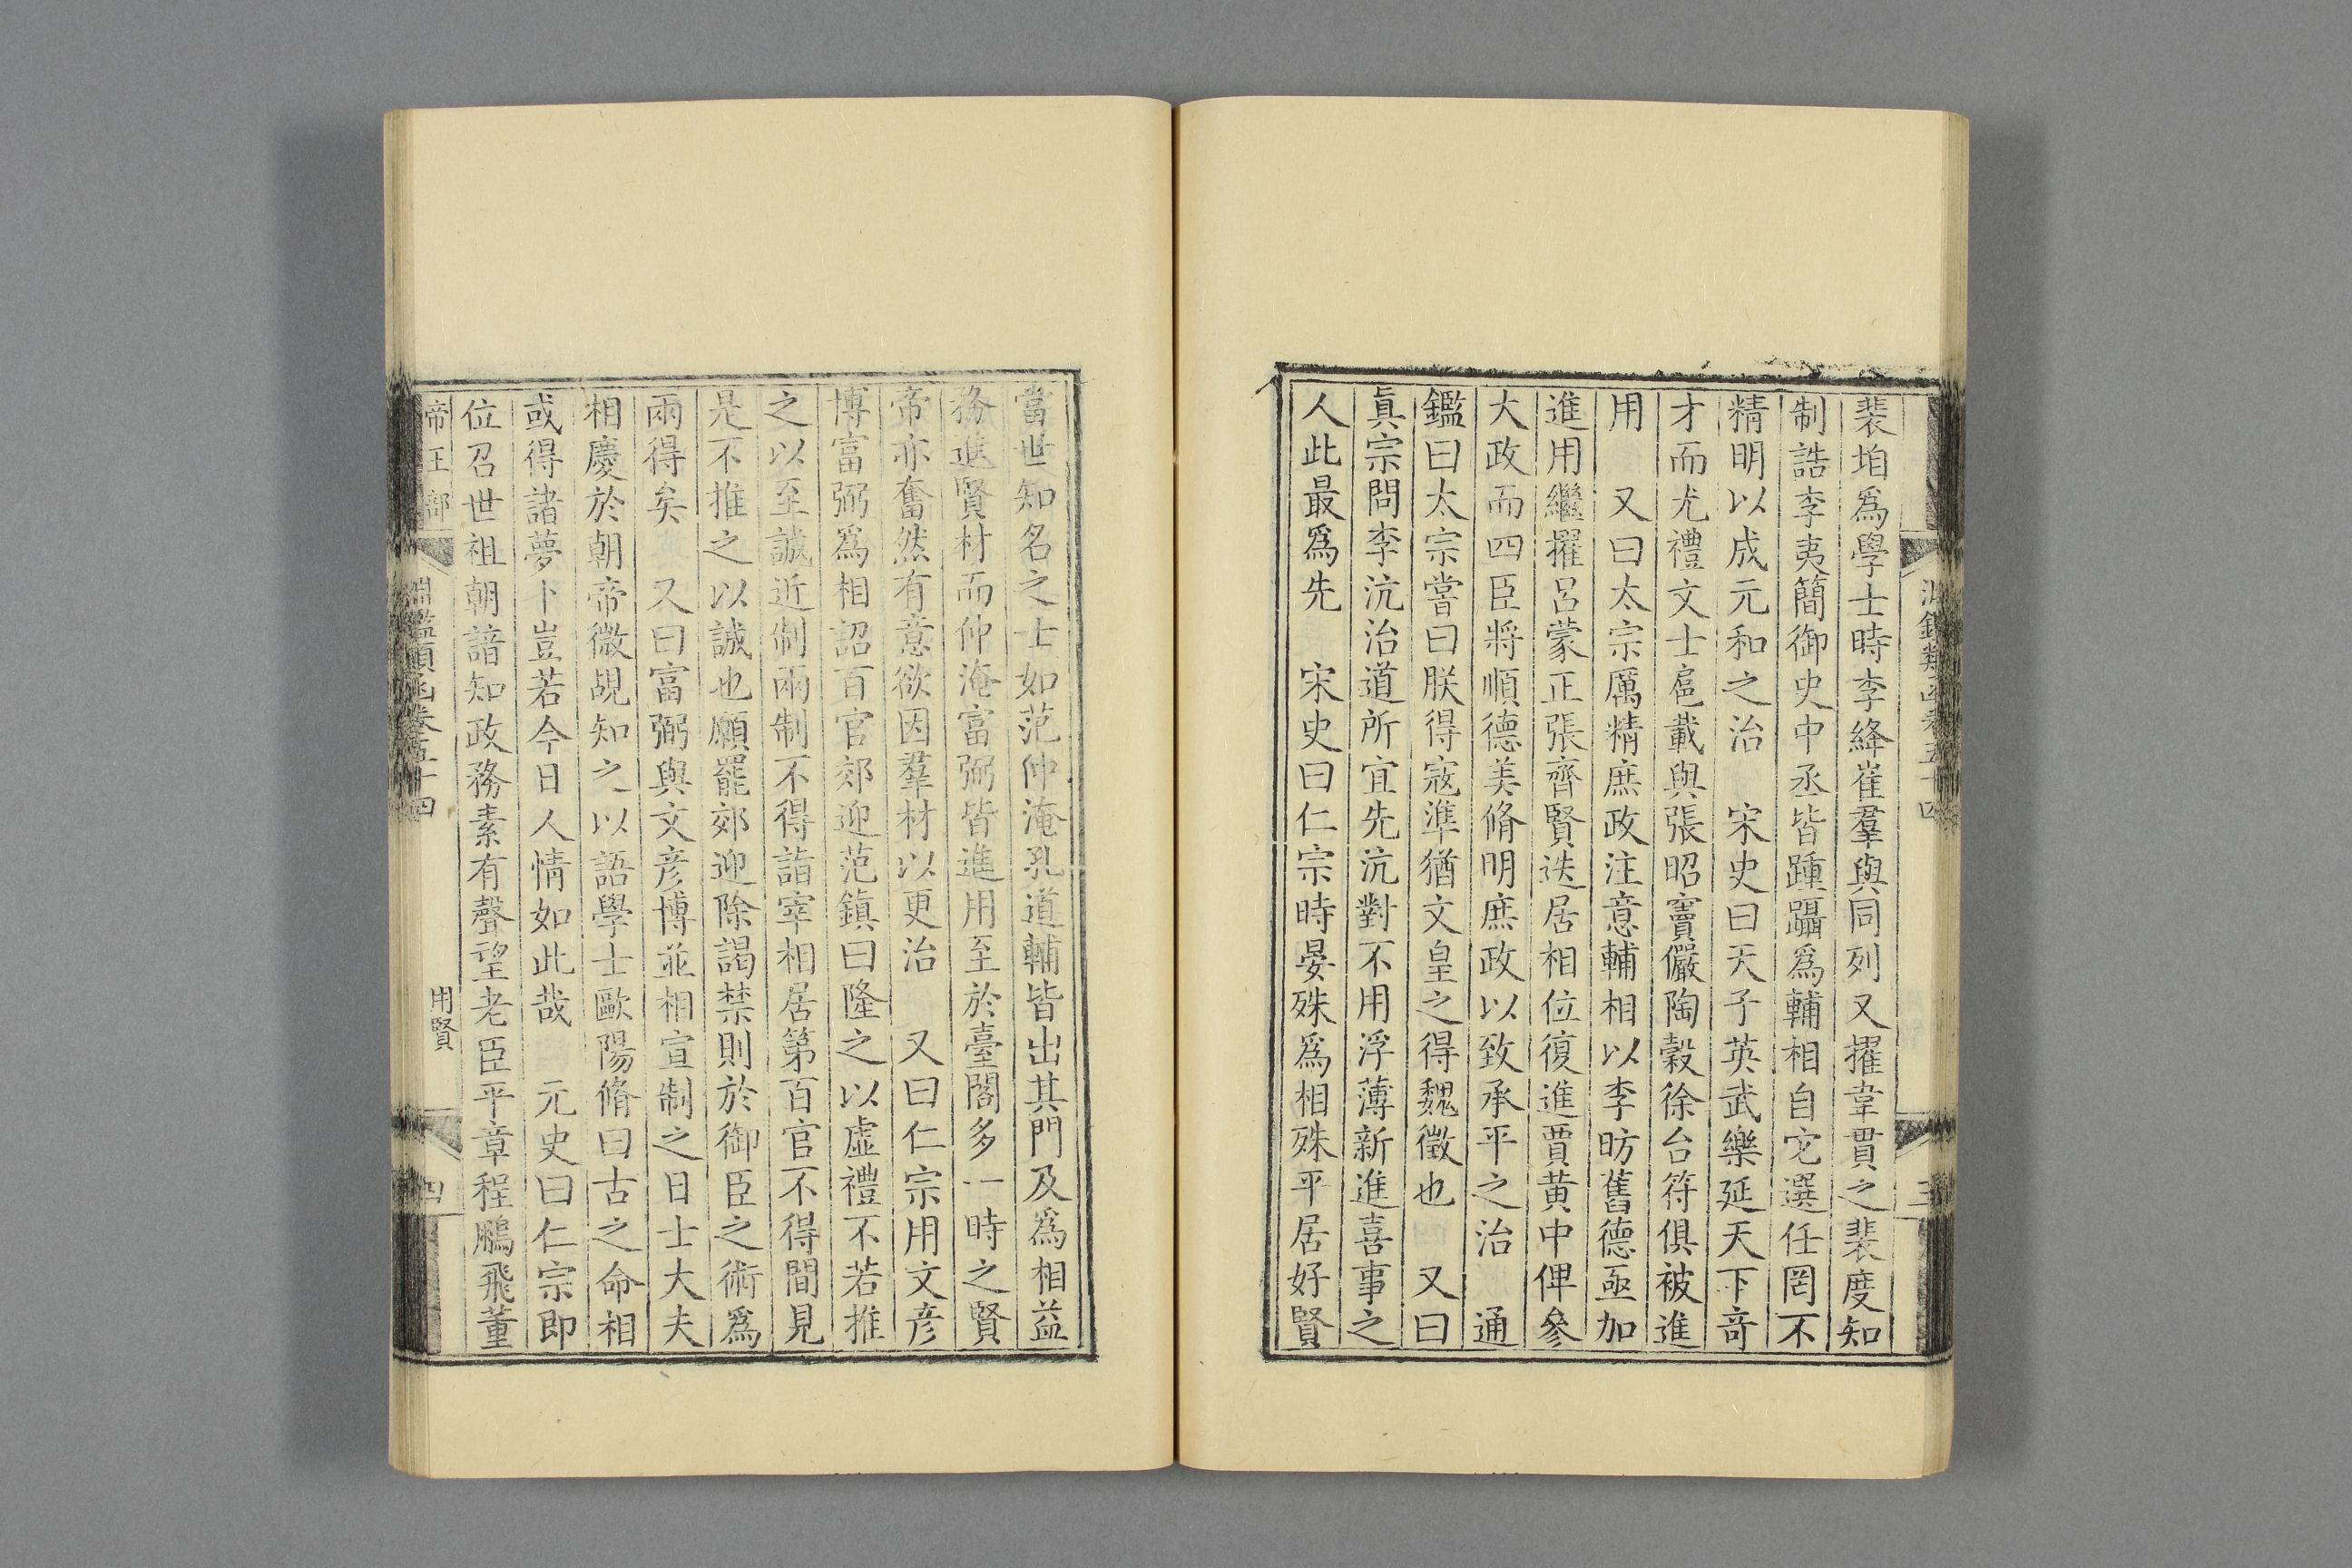 淵鑑類函卷五十四
三
裴垍爲學士時李絳崔羣與同列又擢韋貫之裴度知
制誥李夷簡御史中丞皆踵躡爲輔相自它選任罔不
精明以成元和之治　宋史曰天子英武樂延天下奇
才而尤禮文士扈載與張昭竇儼陶穀徐台符俱被進
用　又曰太宗厲精庶政注意輔相以李昉舊德亟加
進用繼擢呂蒙正張齊賢迭居相位復進賈黃中俾參
大政而四臣將順德美脩明庶政以致承平之治　通
鑑曰太宗嘗曰朕得寇準猶文皇之得魏徵也　又曰
眞宗問李沆治道所宜先沆對不用浮薄新進喜事之
人此最爲先　宋史曰仁宗時晏殊爲相殊平居好賢
當世知名之士如范仲淹孔道輔皆出其門及爲相益
務進賢材而仲淹富弼皆進用至於臺閣多一時之賢
帝亦奮然有意欲因羣材以更治　又曰仁宗用文彥
博富弼爲相詔百官郊迎范鎮曰隆之以虛禮不若推
之以至誠近制兩制不得詣宰相居第百官不得間見
是不推之以誠也願罷郊迎除謁禁則於御臣之術爲
兩得矣　又曰富弼與文彥博並相宣制之日士大夫
相慶於朝帝微覘知之以語學士歐陽脩曰古之命相
或得諸夢卜豈若今日人情如此哉　元史曰仁宗即
位召世祖朝諳知政務素有聲望老臣平章程鵬飛董
帝王部
淵鑑類函卷五十四
用賢
四